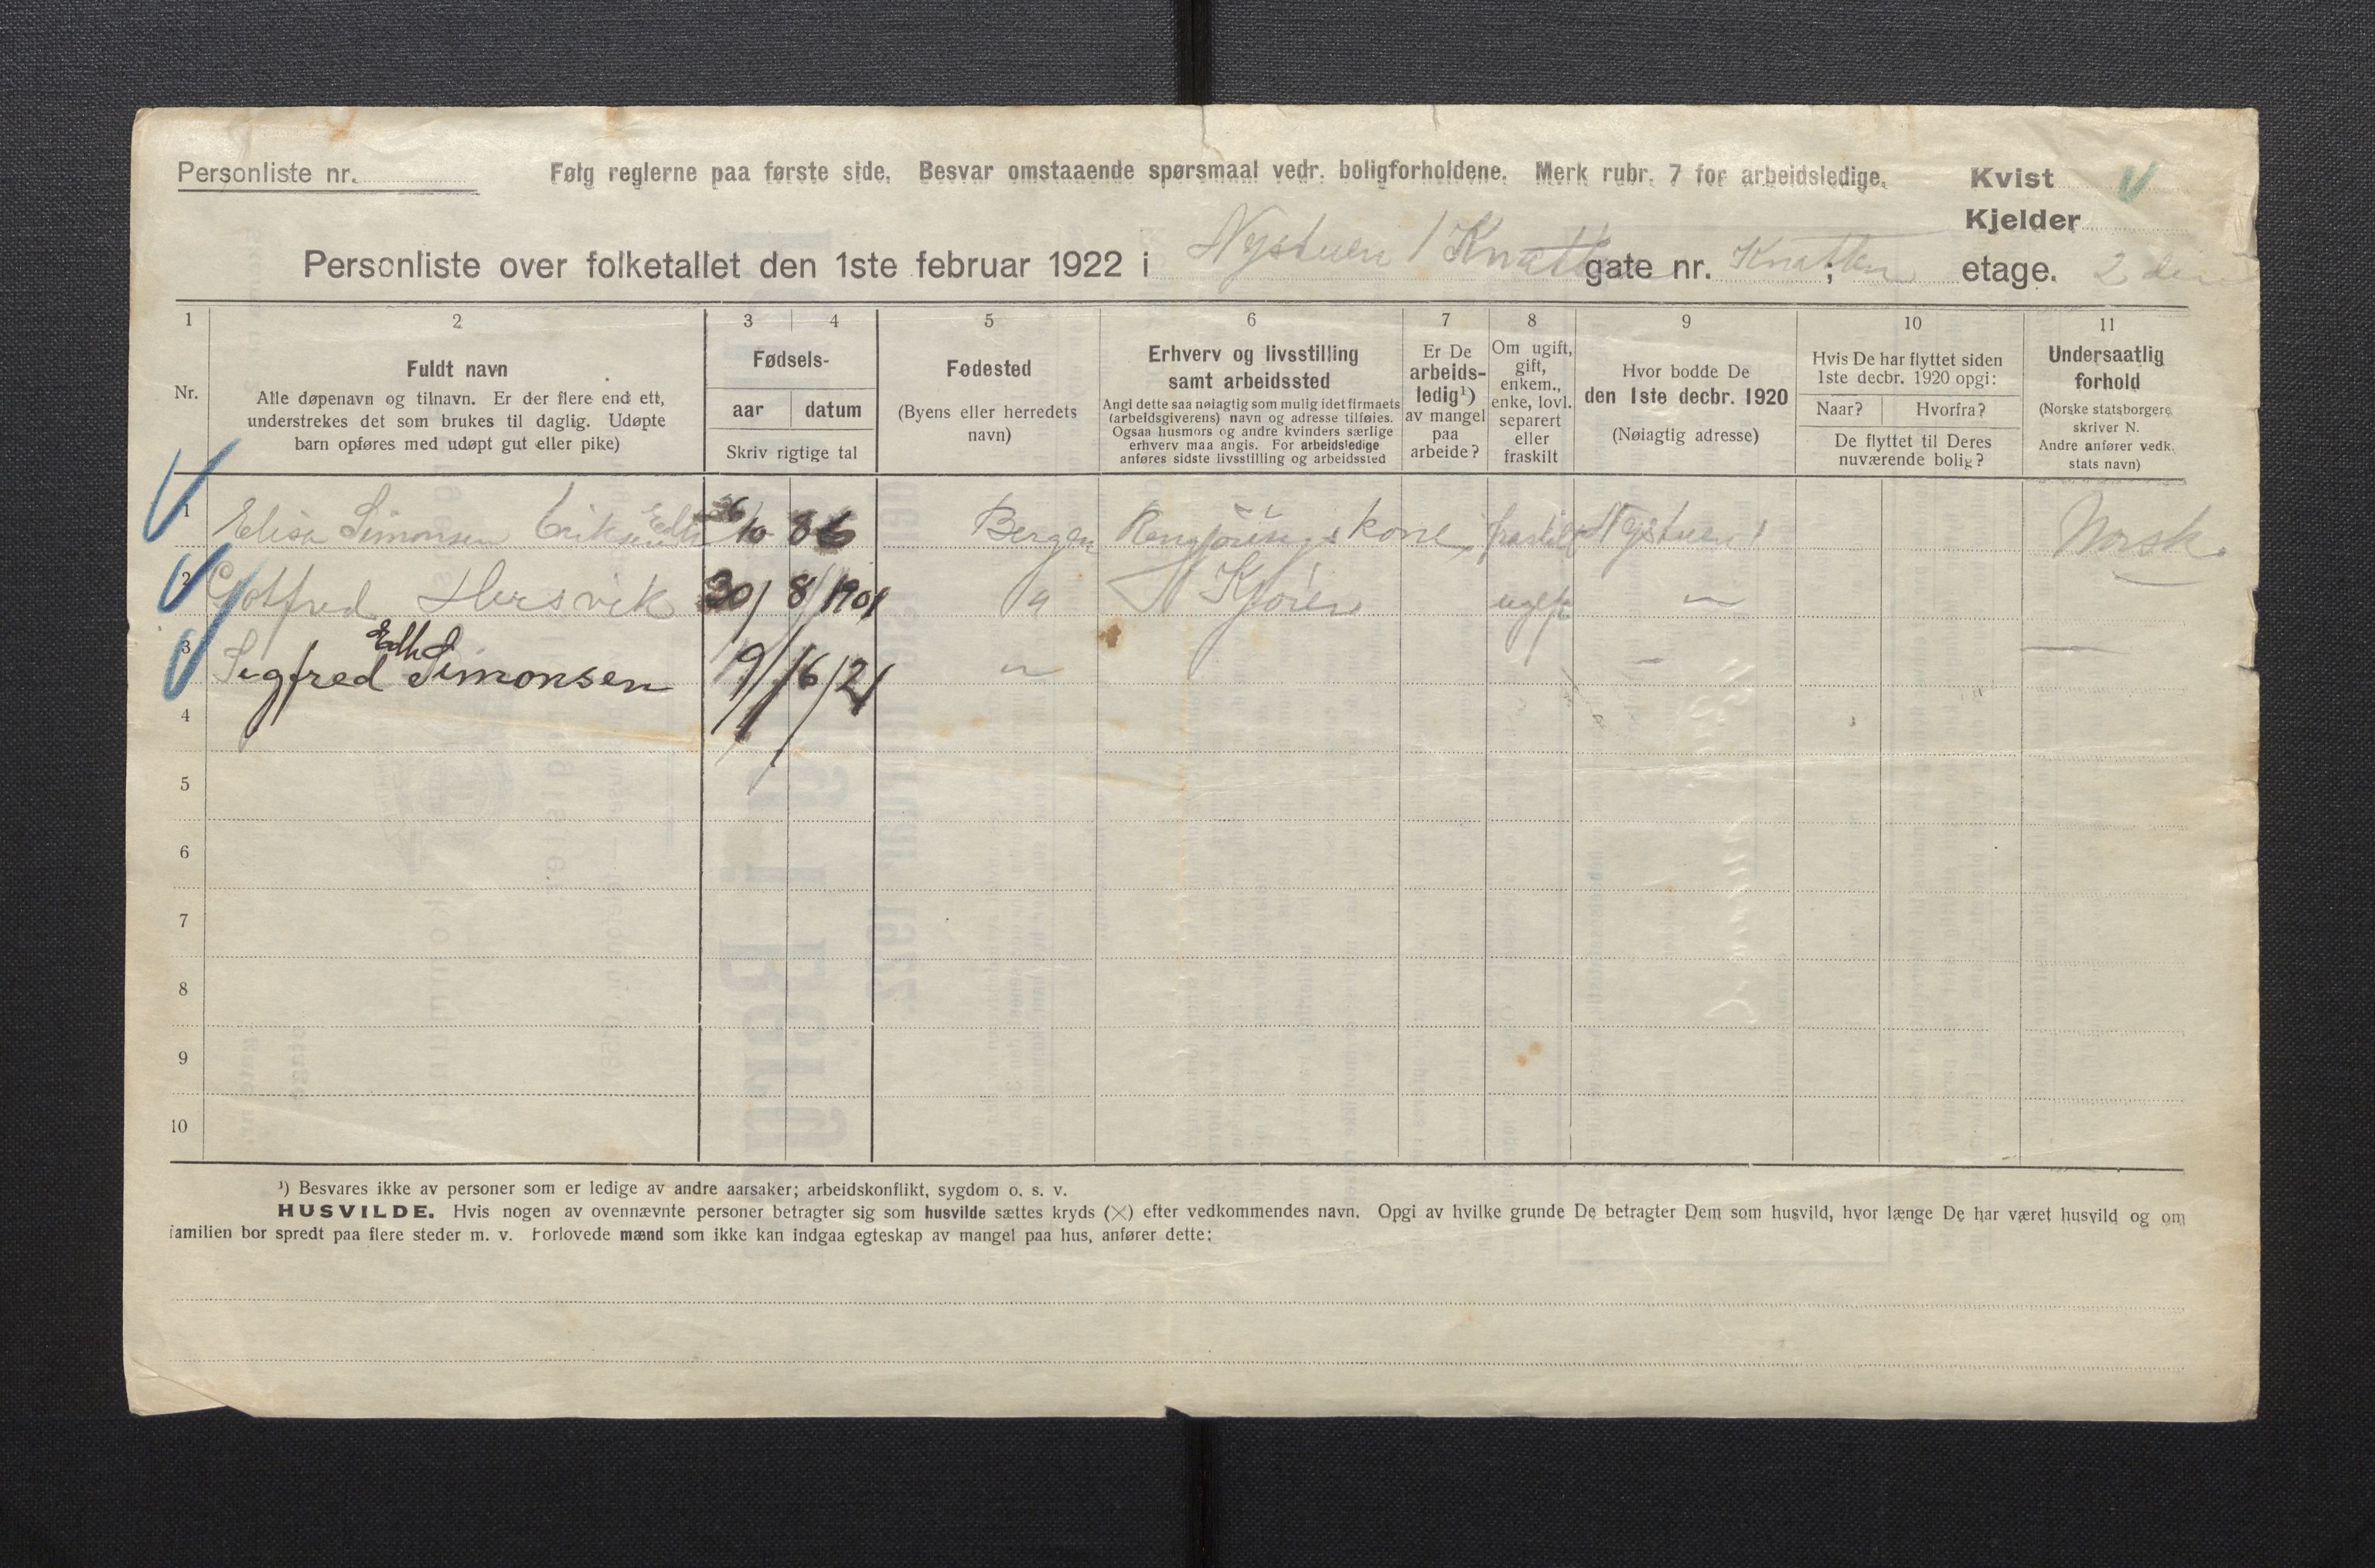 Personliste nr.
Følg reglerne paa første side. Besvar omstaaende spørsmaal vedr. boligforholdene. Merk rubr. 7 for arbeidsledige.
Kvist
Kjelder
Personliste over folketallet den 1ste februar 1922 i Nystuen 1 Knatten gate nr. Knatten ; etage. 2 den
1 2 3 4 5 6 7 8 9 10 11
Nr.
Fuldt navn
Alle døpenavn og tilnavn. Er der flere end ett,
understrekes det som brukes til daglig. Udøpte
barn opføres med udøpt gut eller pike)
Fødsels-
aar datum
Skriv rigtige tal
Fødested
(Byens eller herredets
navn)
Erhverv og livsstilling
samt arbeidssted
Angi dette saa nøiagtig som mulig idet firmaets
(arbeidsgiverens) navn og adresse tilføies.
Ogsaa husmors og andre kvinders særlige
erhverv maa angis. For arbeidsledige
anføres sidste livsstilling og arbeidssted
Er De
arbeids-
ledig¹)
av mangel
paa
arbeide?
Om ugift,
gift,
enkem.,
enke, lovl.
separert
eller
fraskilt
Hvor bodde De
den 1ste decbr. 1920
(Nøiagtig adresse)
Hvis De har flyttet siden
1ste decbr. 1920 opgi:
Naar? Hvorfra?
De flyttet til Deres
nuværende bolig?
Undersaatlig
forhold
(Norske statsborgere
skriver N.
Andre anfører vedk.
stats navn)
1 Elisa Simonsen Eriksen 26/10 86 Bergen Rengjöringskone fraskilt Nystuen 1 Norsk.
2 Gotfred Hersvik 30/8/1901 " ugift
Edh
3 Sigfred Simonsen 9/6/21
4
5
6
7
8
9
10
¹) Besvares ikke av personer som er ledige av andre aarsaker; arbeidskonflikt, sygdom o. s. v.
HUSVILDE. Hvis nogen av ovennævnte personer betragter sig som husvilde sættes kryds (×) efter vedkommendes navn. Opgi av hvilke grunde De betragter Dem som husvild, hvor længe De har været husvild og om
familien bor spredt paa flere steder m. v. Forlovede mænd som ikke kan indgaa egteskap av mangel paa hus, anfører dette: